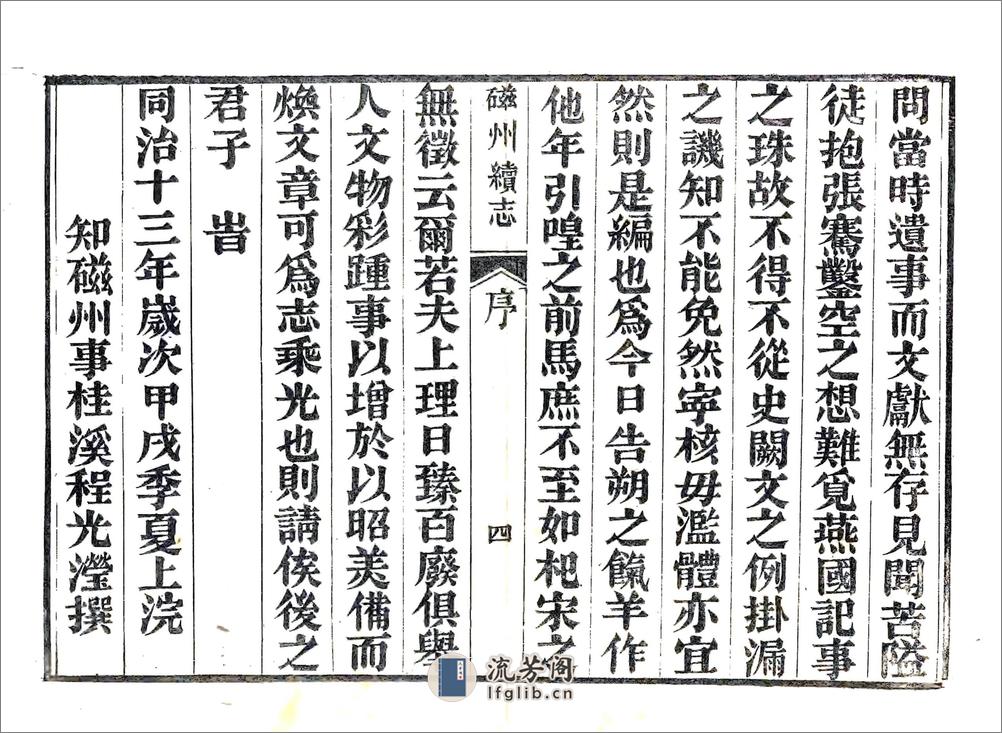 問當時遺事而文獻無存見聞苦隘
徒抱張騫鑿空之想難覓燕國記事
之珠故不得不從史闕文之例掛漏
之譏知不能免然寧核毋濫體亦宜
然則是編也爲今日告朔之餼羊作
他年引喤之前馬庶不至如杞宋之
磁州續志
序
四
無徵云爾若夫上理日臻百廢俱舉
人文物彩踵事以增於以昭美備而
煥文章可爲志乘光也則請俟後之
君子 旹
同治十三年歲次甲戌季夏上浣
知磁州事桂溪程光瀅撰
流芳阁
lfglib.cn